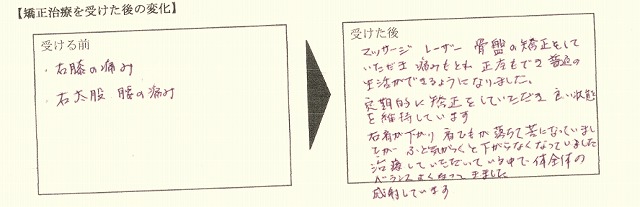 【矯正治療を受けた後の変化】
受ける前
・右膝の痛み
・右太股 腰の痛み
受けた後
マッサージ レーザー 骨盤の矯正をして
いただき 痛みもとれ 正座もでき 普通の
生活ができるようになりました。
定期的に矯正をしていただき 良い状態
を維持しています
右肩が下がり 肩ひもが落ちて苦になっていまし
たが ふと気がつくと下がらなくなっていました
治療していただいている中で 体全体の
バランスよくなってきました
感謝しています